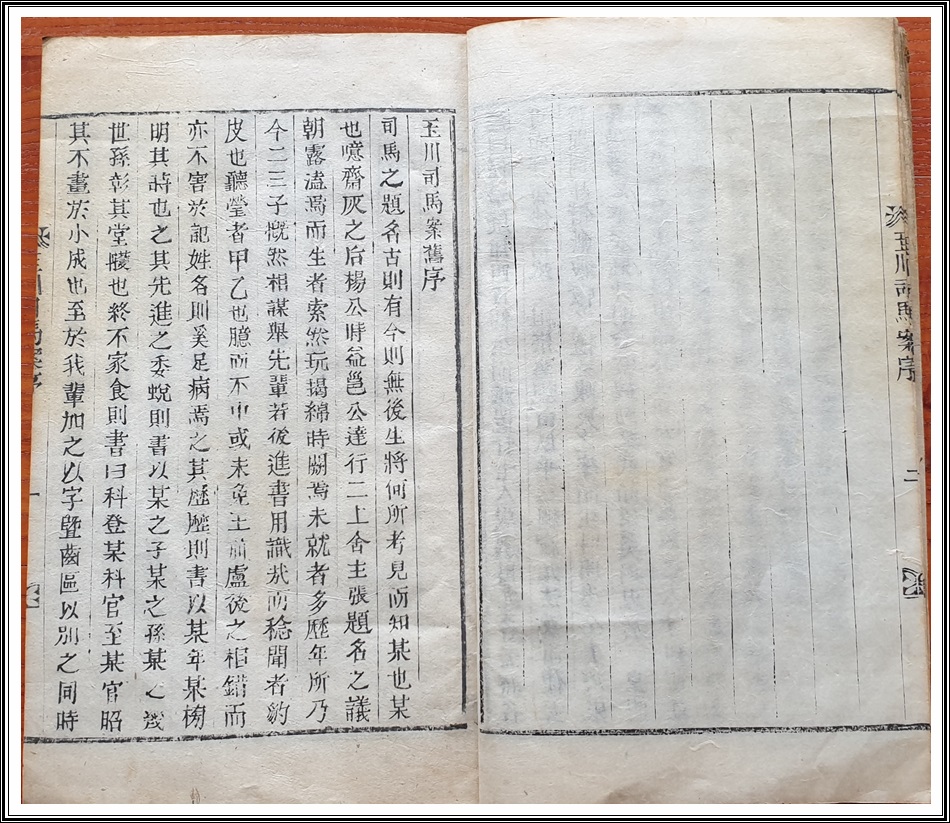 玉川司馬案序
二
玉川司馬案舊序
司馬之題名古則有今則無後生將何所考見而知某也某
也噫齋灰之后楊公時益邕公達行二上舍主張題名之議
朝露溘焉而生者索然玩揭綿時闕焉未就者多歷年所乃
今二三子慨然相謀舉先輩若後進書用識哉而稔聞者豹
皮也聽瑩者甲乙也臆而不中或未免王前盧後之相錯而
亦不害於記姓名則奚足病焉之其歷歷則書以某年某榜
明其時也之其先進之委蛻則書以某之子某之孫某之幾
世孫彰其堂幪也終不家食則書曰科登某科官至某官昭
其不畫於小成也至於我輩加之以字曁齒區以別之同時
玉川司馬案序
一